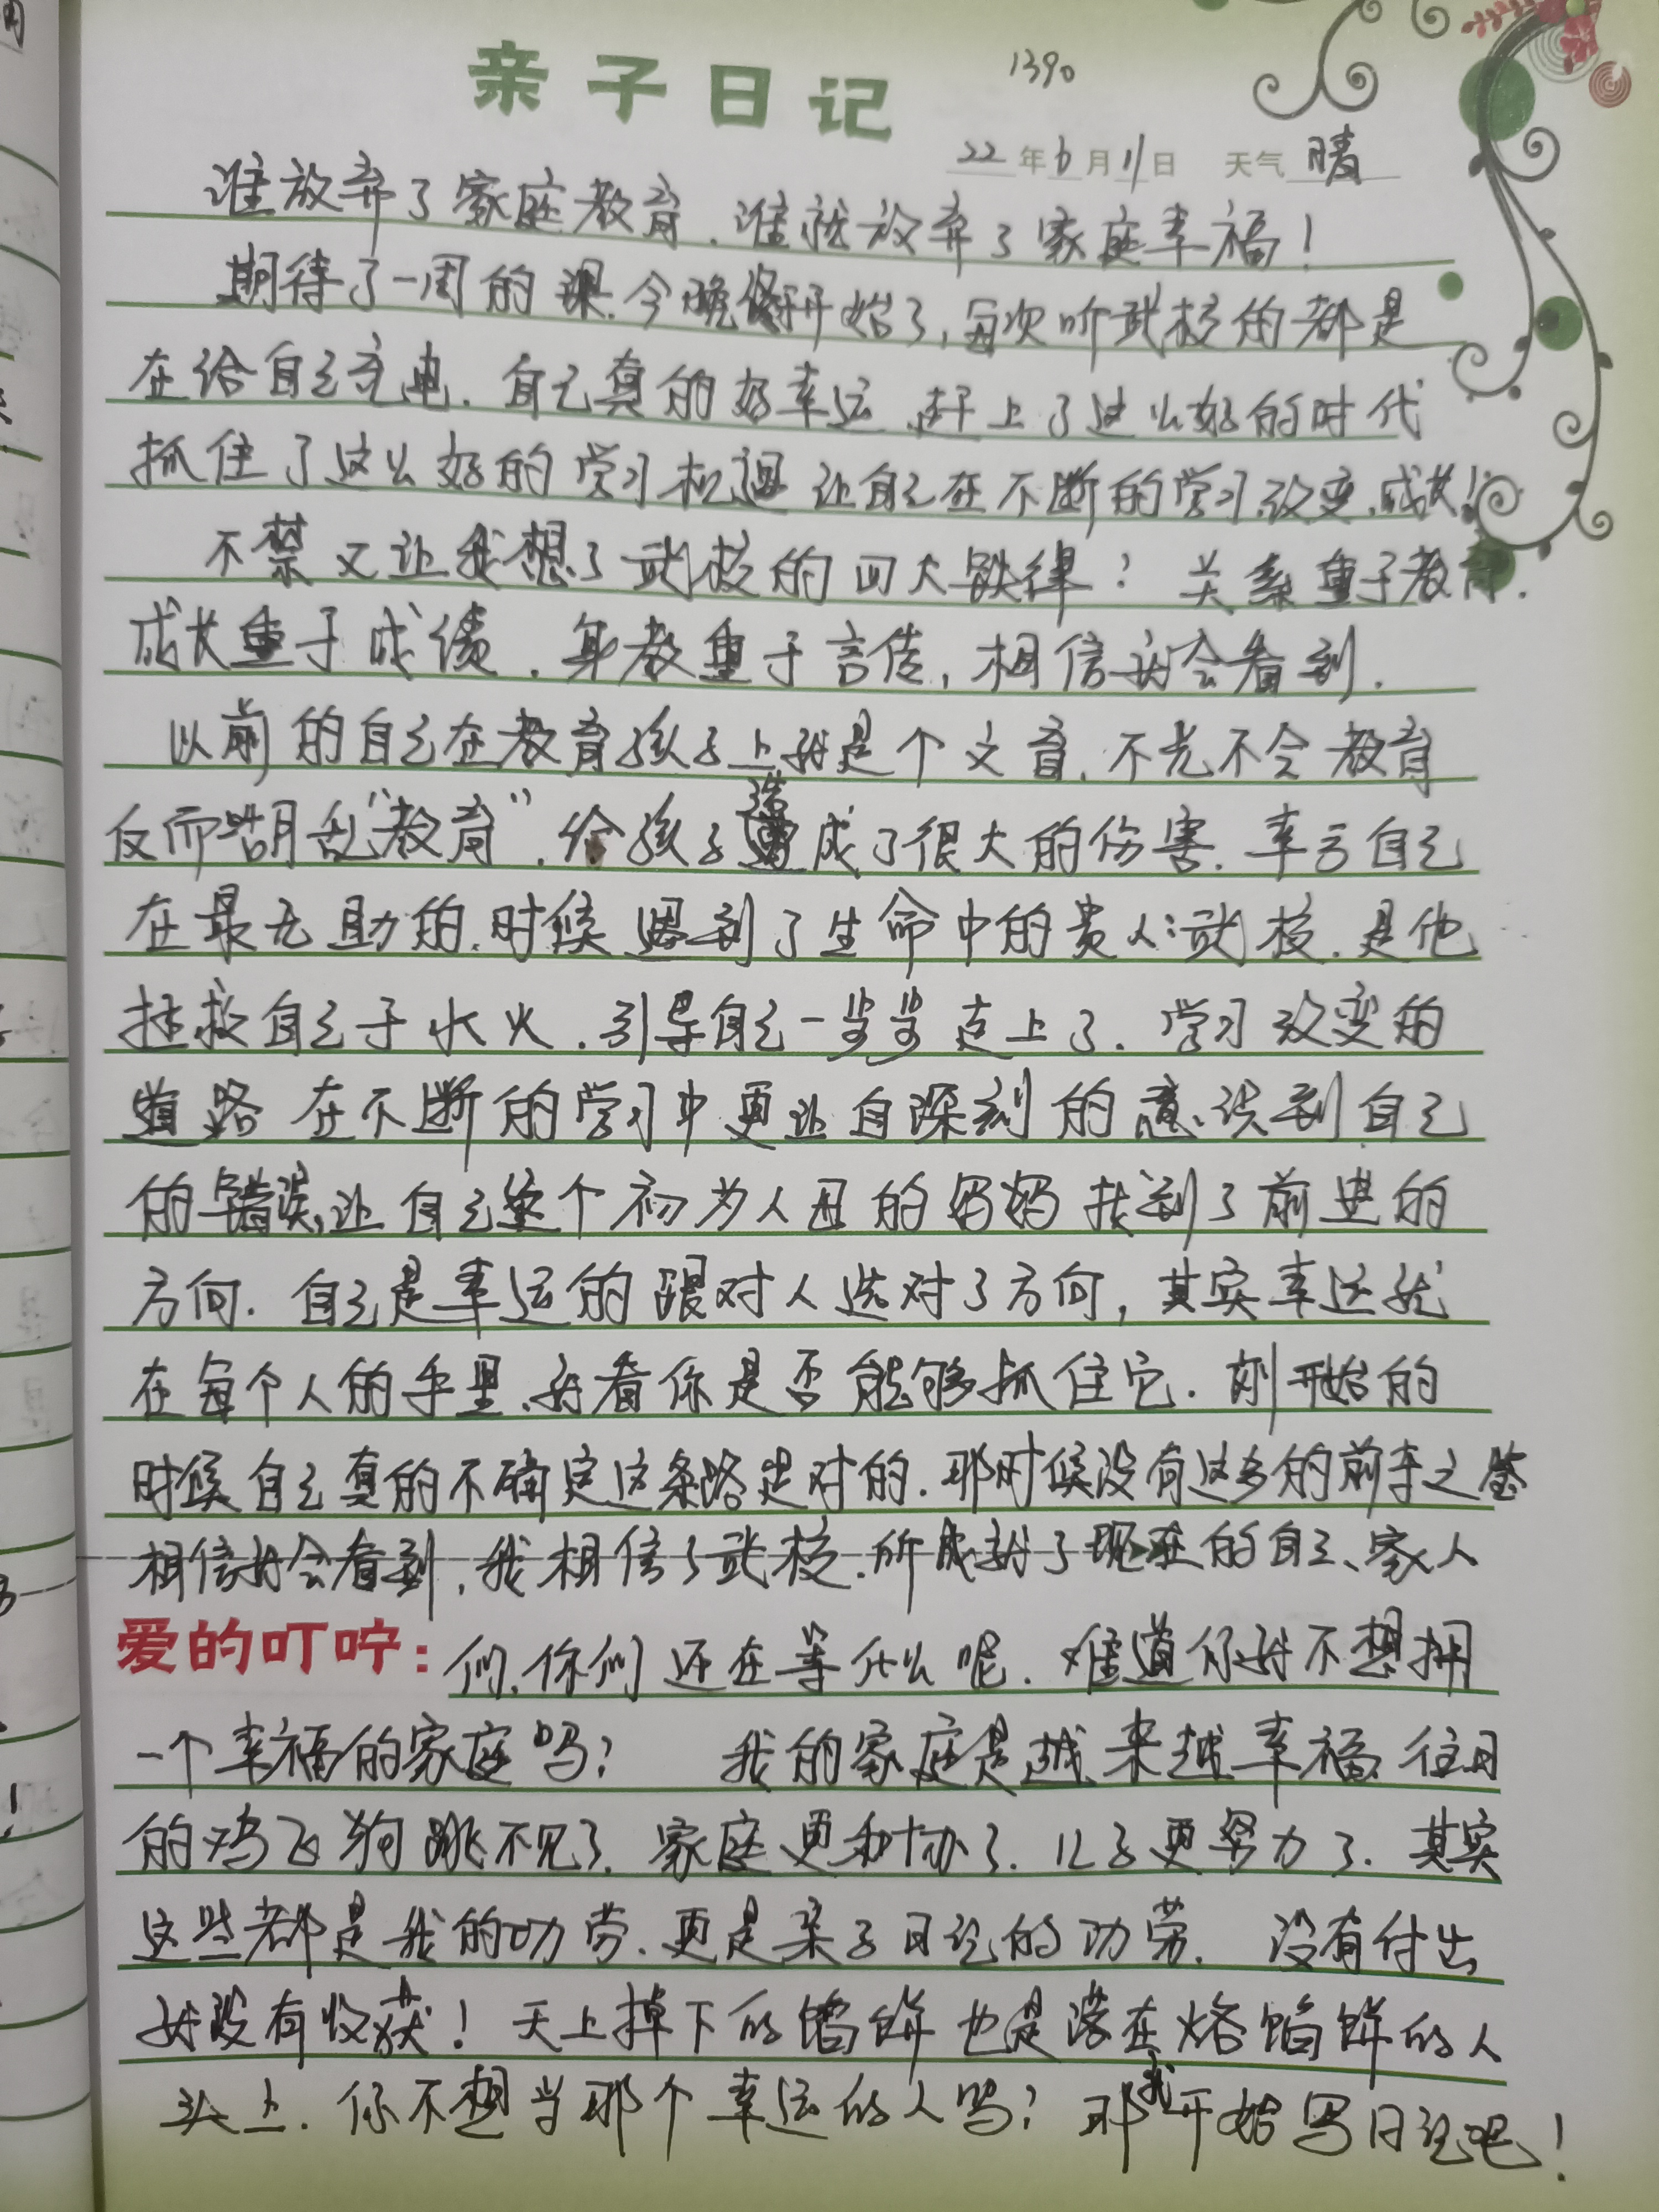 亲子日记 1390
22年6月11日 天气 晴
谁放弃了家庭教育.谁就放弃了家庭幸福!
期待了一周的课.今晚开始了,每次听武校的都是
在给自己充电.自己真的好幸运.赶上了这么好的时代
抓住了这么好的学习机遇让自己在不断的学习.改变.成长!
不禁又让我想了武校的四大铁律:关系重于教育.
成长重于成绩.身教重于言传,相信就会看到.
以前的自己在教育孩子上就是个文盲.不光不会教育
反而胡乱“教育”.给孩子造成了很大的伤害.幸亏自己
在最无助的.时候遇到了生命中的贵人:武校.是他
拯救自己于水火.引导自己一步步走上了.学习改变的
道路 在不断的学习中更让自深刻的意识到自己
的错误,让自己这个初为人母的妈妈找到了前进的
方向.自己是幸运的跟对人选对了方向,其实幸运就
在每个人的手里.就看你是否能够抓住它.刚开始的
时候自己真的不确定这条路是对的.那时候没有这多的前车之鉴
相信就会看到,我相信了武校.所成就了现在的自己、家人
爱的叮咛:们.你们还在等什么呢.难道你就不想拥
一个幸福的家庭吗? 我的家庭是越来越幸福.往日
的鸡飞狗跳不见了.家庭更和协了.儿子更努力了.其实
这些都是我的功劳.更是亲子日记的功劳. 没有付出
就没有收获!天上掉下的馅饼也是落在烙馅饼的人
头上.你不想当那个幸运的人吗?那就开始写日记吧!